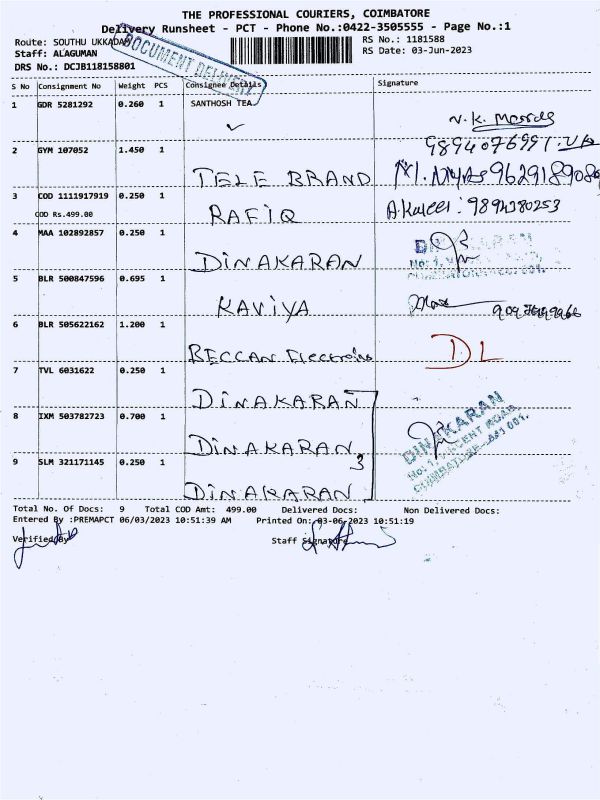 THE PROFESSIONAL COURIERS, COIMBATORE
Delivery Runsheet - PCT - Phone No.:0422-3505555 - Page No.:1
Route: SOUTHU UKKADAM
RS No.: 1181588
Staff: ALAGUMAN
RS Date: 03-Jun-2023
DRS No.: DCJB118158801
DOCUMENT DELIVERY
S No Consignment No Weight PCS Consignee Details Signature
1 GDR 5281292 0.260 1 SANTHOSH TEA
2 GYM 107052 1.450 1
TELE BRAND
3 COD 1111917919 0.250 1
COD Rs.499.00
RAFIQ A.Kaleel: 9894380253
4 MAA 102892857 0.250 1
DINAKARAN
DINAKARAN
5 BLR 500847596 0.695 1
KAVIYA
6 BLR 505622162 1.200 1
BECCAN Electronics
DL
7 TVL 6031622 0.250 1
DINAKARAN
8 IXM 503782723 0.700 1
DINAKARAN 3
DINAKARAN
9 SLM 321171145 0.250 1
DINAKARAN
Total No. Of Docs: 9 Total COD Amt: 499.00 Delivered Docs: Non Delivered Docs:
Entered By :PREMAPCT 06/03/2023 10:51:39 AM Printed On: 03-06-2023 10:51:19
Verified By
Staff Signature